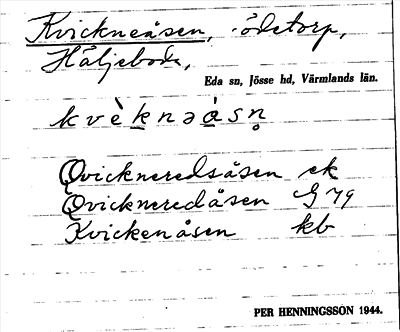 Kvickneåsen, ödetorp,
Häljeboda,
Eda sn, Jösse hd, Värmlands län.
kvèknəásn̥
Qvickneredsåsen ek
Qvickneredåsen G 79
Kvickenåsen kb
PER HENNINGSSON 1944.